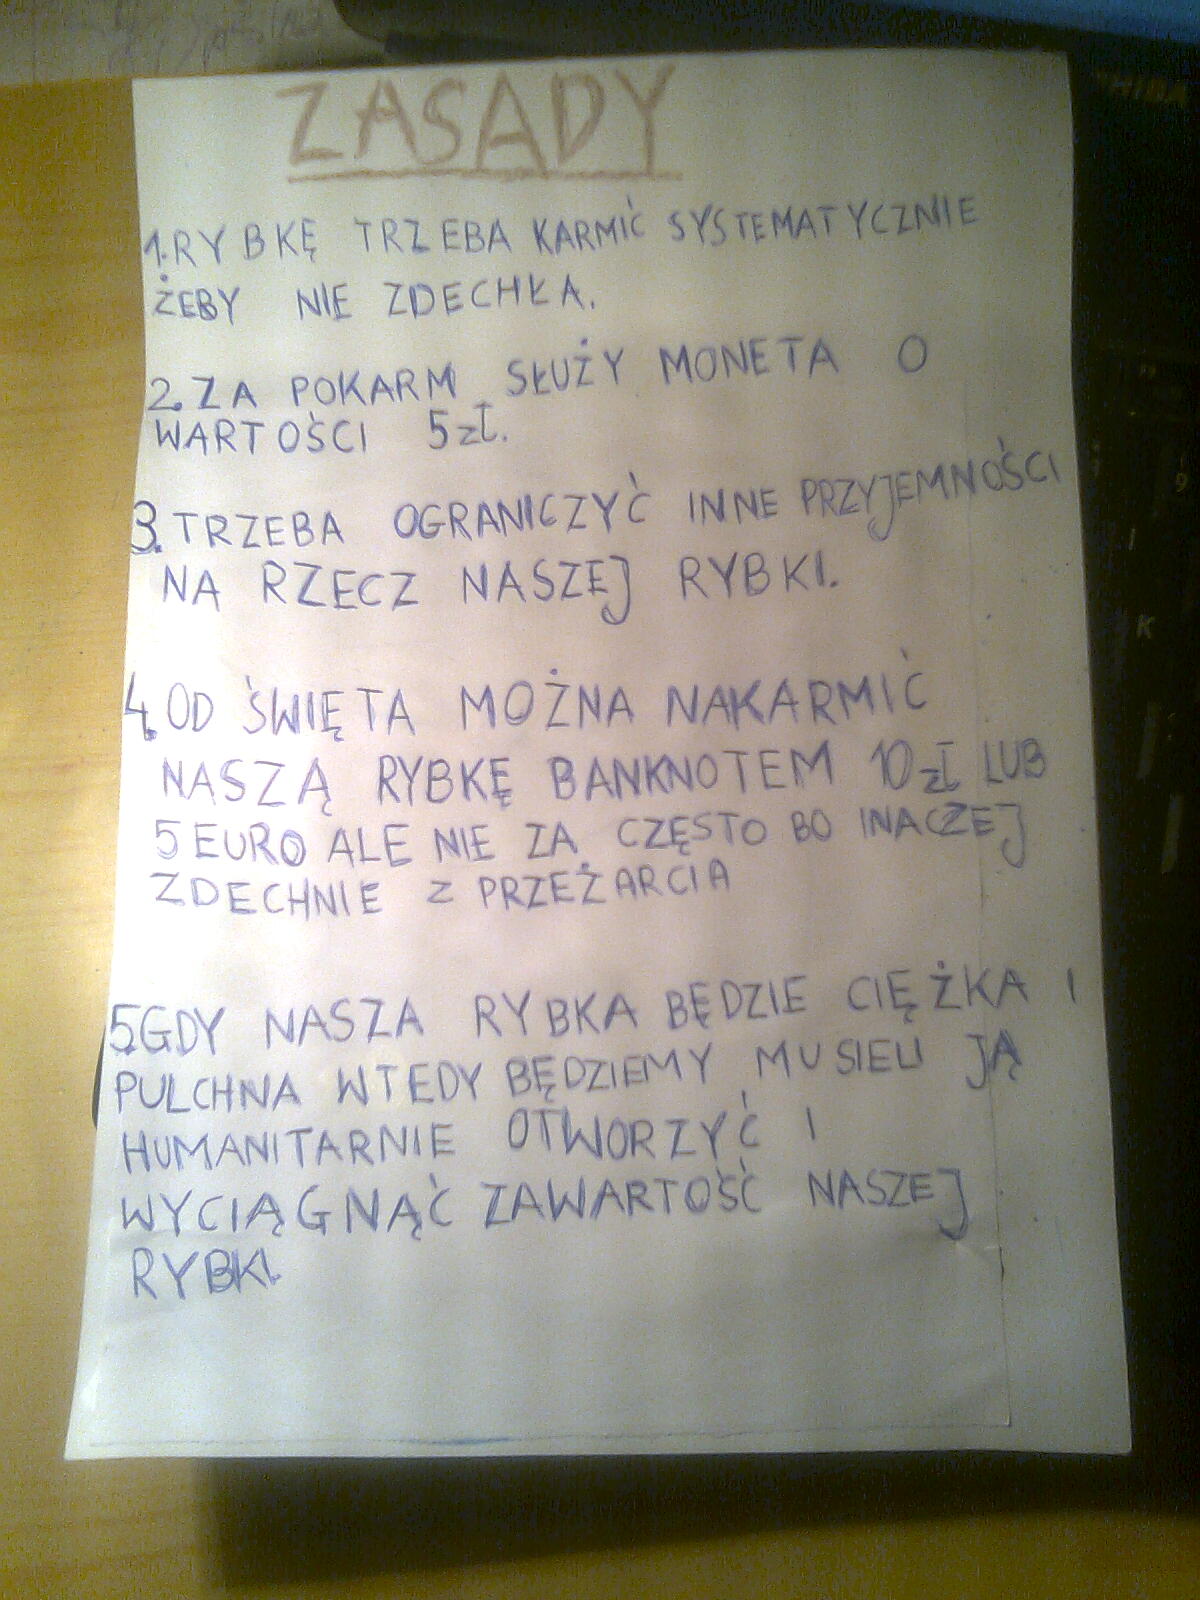 ZASADY
1.RYBKĘ TRZEBA KARMIĆ SYSTEMATYCZNIE
ŻEBY NIE ZDECHŁA.
2.ZA POKARM SŁUŻY MONETA O
WARTOŚCI 5 zł.
3.TRZEBA OGRANICZYĆ INNE PRZYJEMNOŚCI
NA RZECZ NASZEJ RYBKI.
4.OD ŚWIĘTA MOŻNA NAKARMIĆ
NASZĄ RYBKĘ BANKNOTEM 10 zł LUB
5 EURO ALE NIE ZA CZĘSTO BO INACZEJ
ZDECHNIE Z PRZEŻARCIA
5.GDY NASZA RYBKA BĘDZIE CIĘŻKA I
PULCHNA WTEDY BĘDZIEMY MUSIELI JĄ
HUMANITARNIE OTWORZYĆ I
WYCIĄGNĄĆ ZAWARTOŚĆ NASZEJ
RYBKI.
K